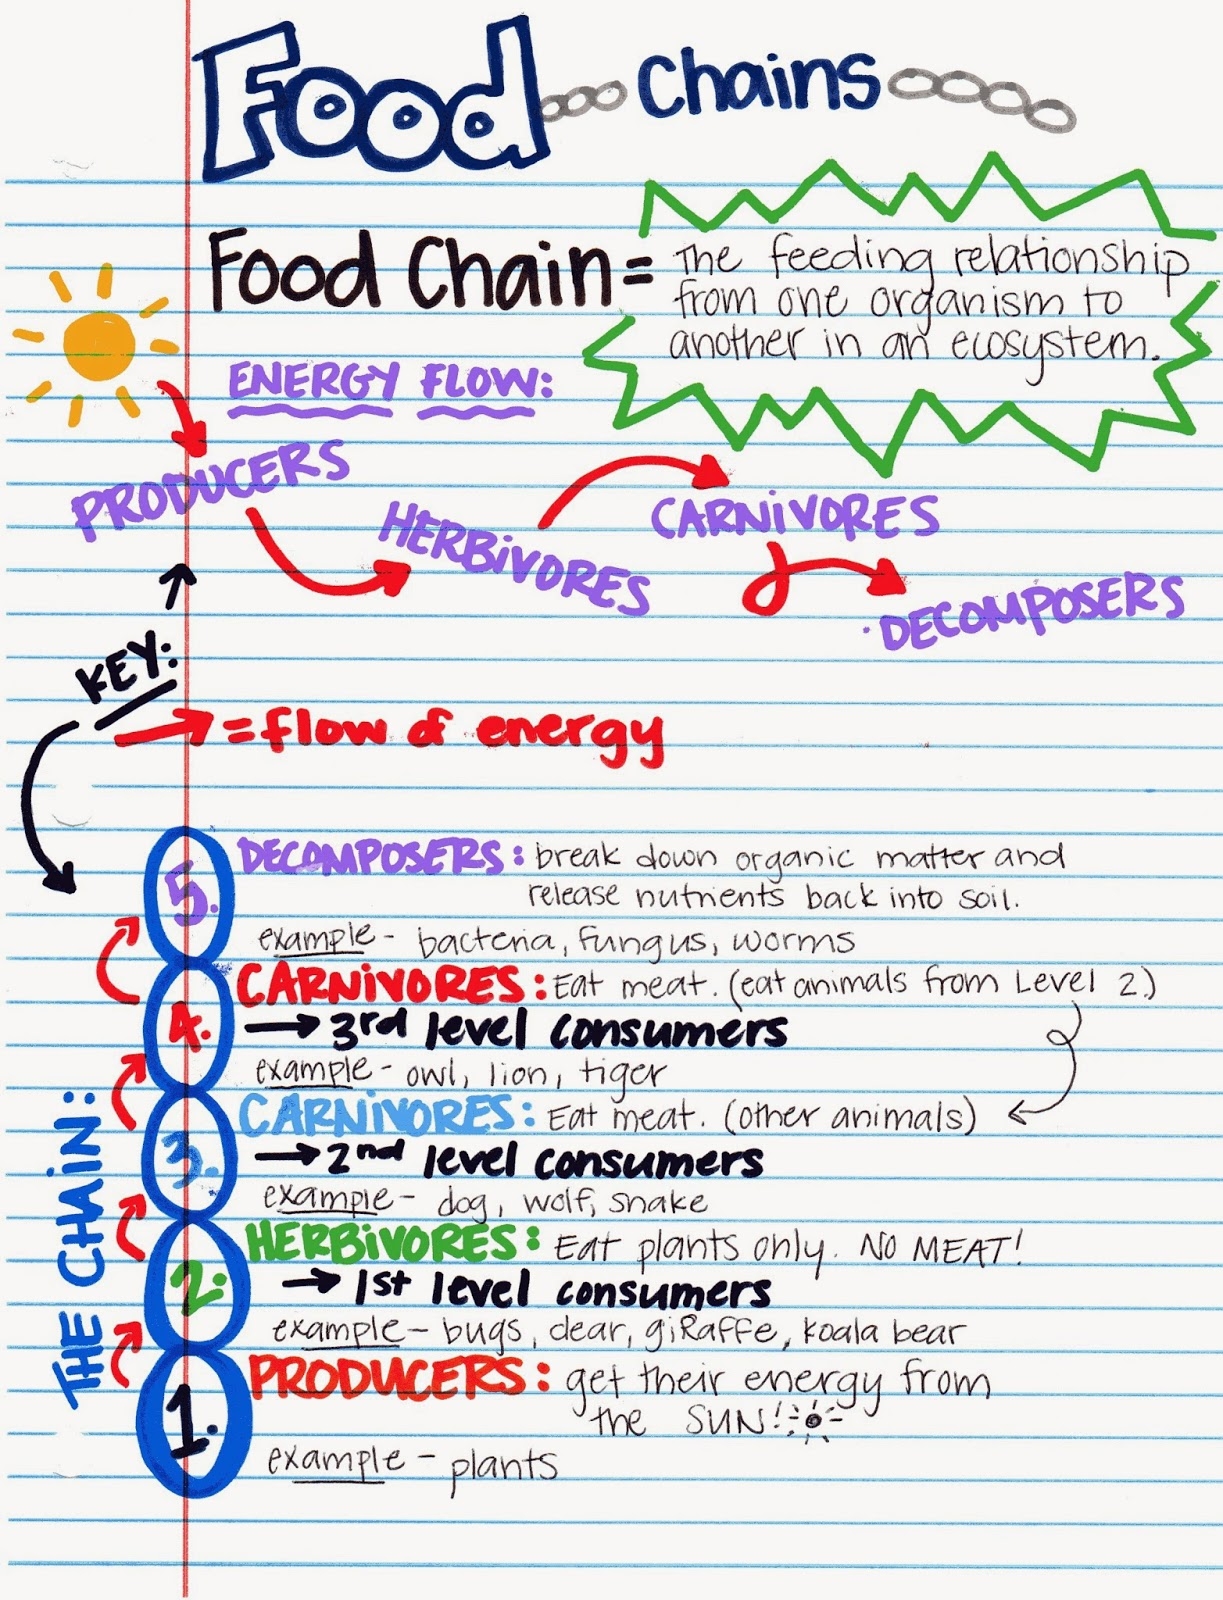 Food Chains
Food Chain = The feeding relationship
from one organism to
another in an ecosystem.
ENERGY FLOW:
PRODUCERS
HERBIVORES
CARNIVORES
DECOMPOSERS
KEY:
= flow of energy
THE CHAIN:
5. DECOMPOSERS: break down organic matter and
release nutrients back into soil.
example - bacteria, fungus, worms
4. CARNIVORES: Eat meat. (eat animals from Level 2.)
→ 3rd level consumers
example - owl, lion, tiger
3. CARNIVORES: Eat meat. (other animals)
→ 2nd level consumers
example - dog, wolf, snake
2. HERBIVORES: Eat plants only. NO MEAT!
→ 1st level consumers
example - bugs, dear, giraffe, koala bear
1. PRODUCERS: get their energy from
the SUN!
example - plants